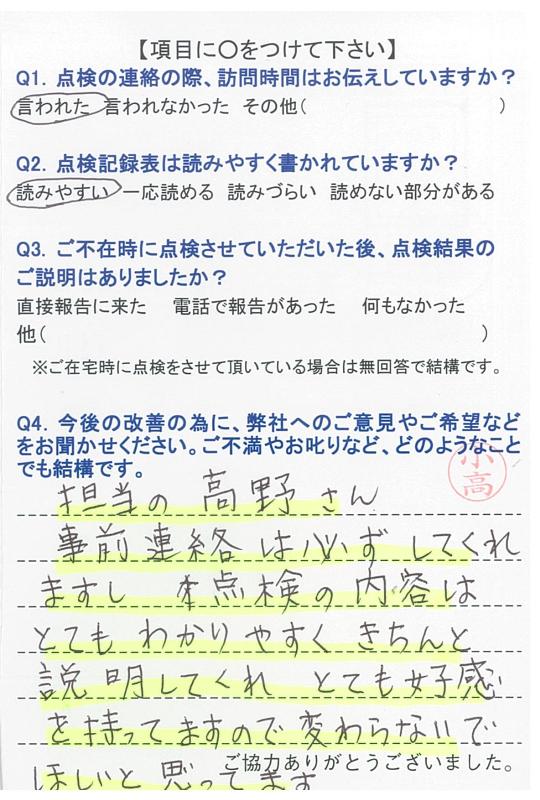 【項目に〇をつけて下さい】
Q1. 点検の連絡の際、訪問時間はお伝えしていますか？
言われた 言われなかった その他(　　　)
Q2. 点検記録表は読みやすく書かれていますか？
読みやすい 一応読める 読みづらい 読めない部分がある
Q3. ご不在時に点検させていただいた後、点検結果の
ご説明はありましたか？
直接報告に来た 電話で報告があった 何もなかった
他(　　　)
※ご在宅時に点検をさせて頂いている場合は無回答で結構です。
Q4. 今後の改善の為に、弊社へのご意見やご希望など
をお聞かせください。ご不満やお叱りなど、どのようなこと
でも結構です。
小
高
担当の 高野さん
事前連絡は必ずしてくれ
ますし 点検の内容は
とても わかりやすく きちんと
説明してくれ とても好感
を持ってますので変わらないで
ほしいと思ってます
ご協力ありがとうございました。